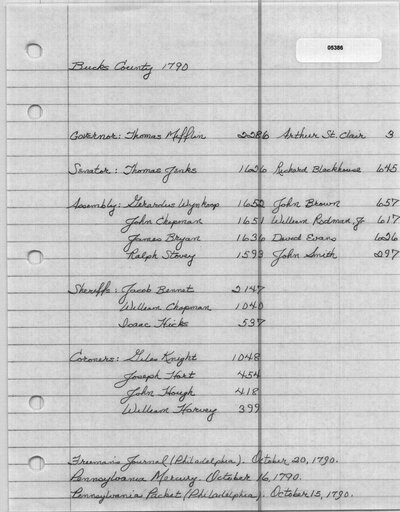 05386
Bucks County 1790
Governor: Thomas Mifflin 2286 Arthur St. Clair 3
Senator: Thomas Jenks 1626 Richard Blackhouse 645
Assembly: Gerardus Wynkoop 1652 John Brown 657
John Chapman 1651 William Rodman, Jr 617
James Bryan 1636 David Evans 626
Ralph Stovey 1593 John Smith 297
Sheriffs: Jacob Bennet 2147
William Chapman 1040
Isaac Hicks 537
Coroners: Giles Knight 1048
Joseph Hart 454
John Hough 418
William Harvey 399
Freeman's Journal (Philadelphia). October 20, 1790.
Pennsylvania Mercury. October 16, 1790.
Pennsylvania Packet (Philadelphia). October 15, 1790.